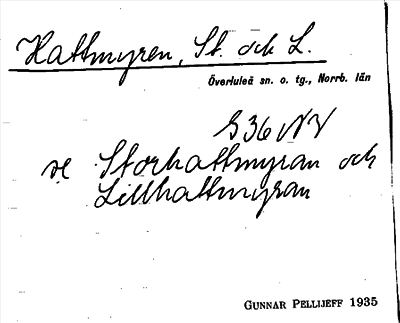 Hattmyren, St. och L.
Överluleå sn. o. tg., Norrb. län
S36 NV
se Storhattmyran och
Lillhattmyran
GUNNAR PELLIJEFF 1935